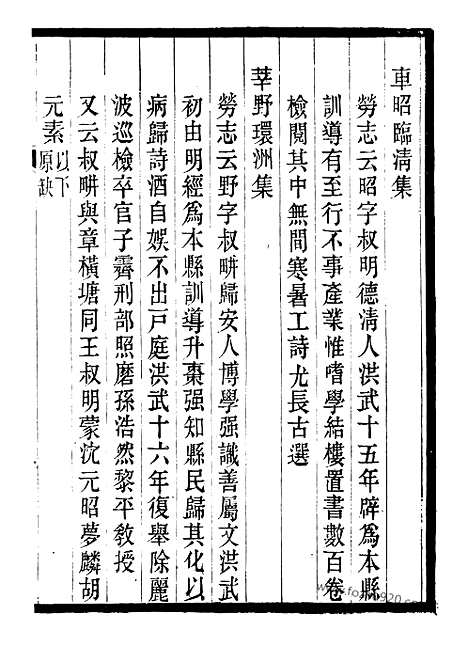 車昭臨清集
勞志云昭字叔明德清人洪武十五年辟爲本縣
訓導有至行不事產業惟嗜學結樓置書數百卷
檢閱其中無間寒暑工詩尤長古選
莘野環洲集
勞志云野字叔畊歸安人博學强識善屬文洪武
初由明經爲本縣訓導升棗强知縣民歸其化以
病歸詩酒自娛不出戸庭洪武十六年復舉除麗
波巡檢卒官子霽刑部照磨孫浩然黎平敎授
又云叔畊與章橫塘同王叔明蒙沈元昭夢麟胡
元素以下原缺